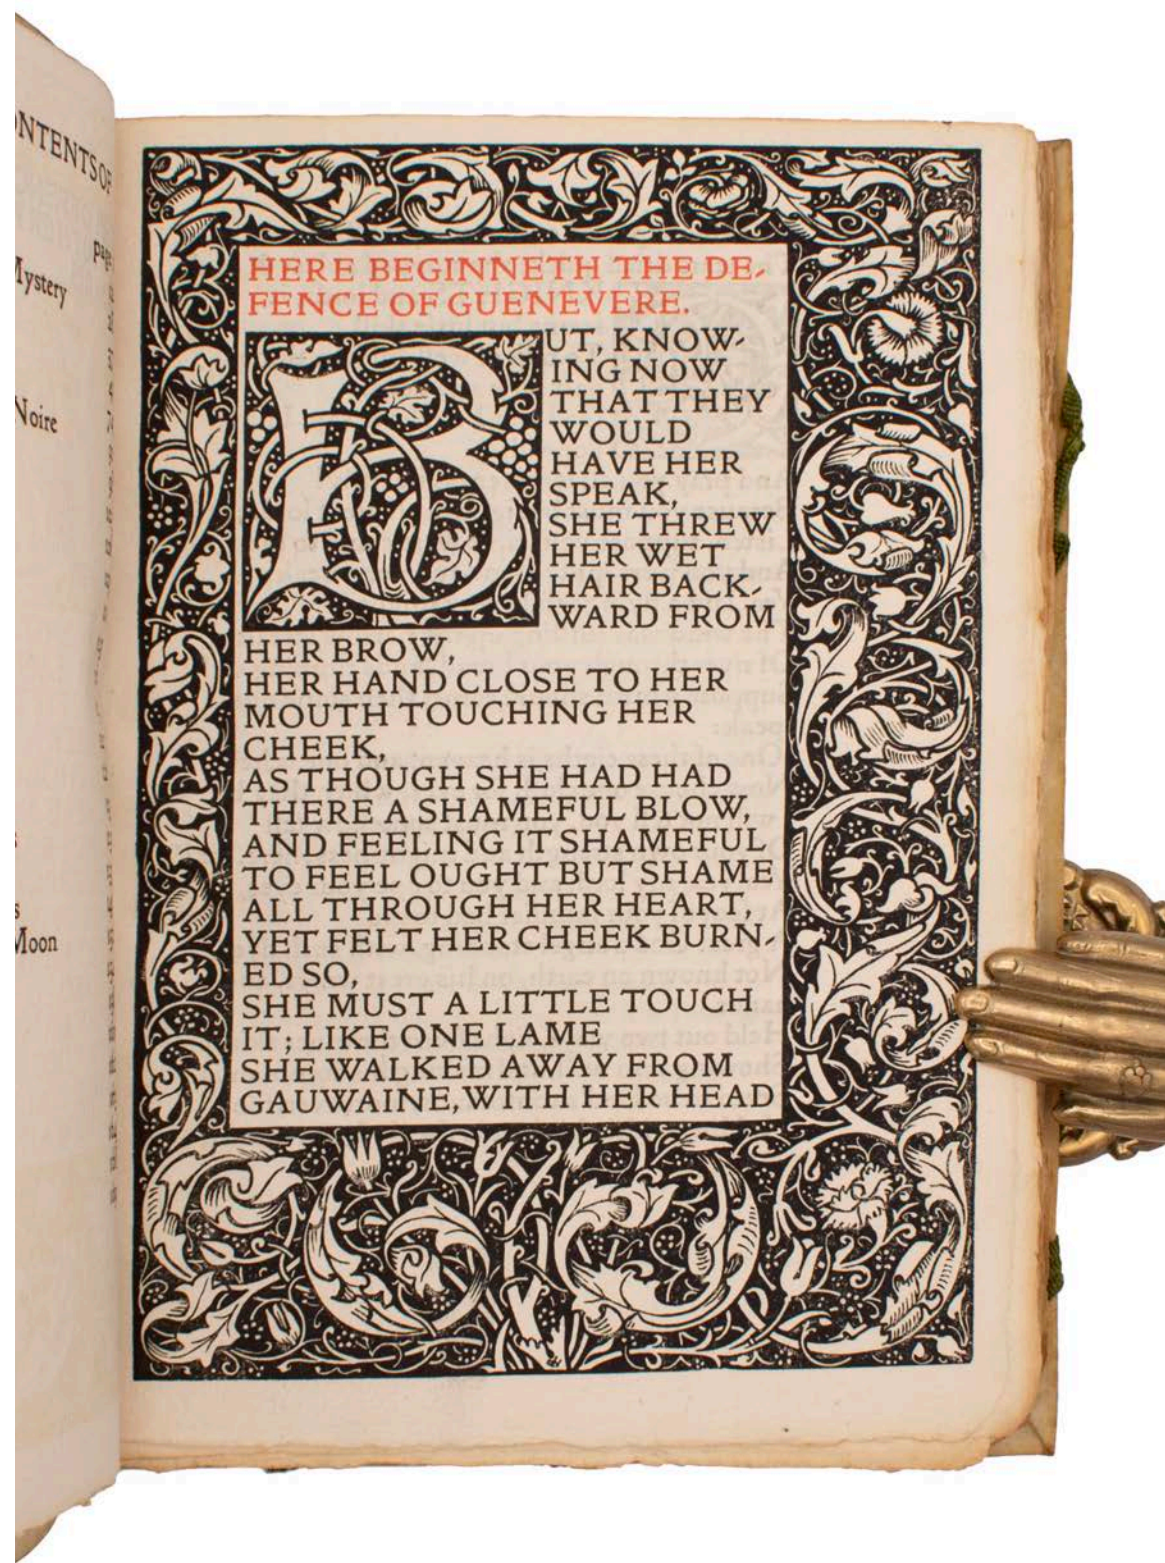 ONTENTS OF
page
Mystery
Noire
Moon
HERE BEGINNETH THE DE-
FENCE OF GUENEVERE.
BUT, KNOW-
ING NOW
THAT THEY
WOULD
HAVE HER
SPEAK,
SHE THREW
HER WET
HAIR BACK-
WARD FROM
HER BROW,
HER HAND CLOSE TO HER
MOUTH TOUCHING HER
CHEEK,
AS THOUGH SHE HAD HAD
THERE A SHAMEFUL BLOW,
AND FEELING IT SHAMEFUL
TO FEEL OUGHT BUT SHAME
ALL THROUGH HER HEART,
YET FELT HER CHEEK BURN-
ED SO,
SHE MUST A LITTLE TOUCH
IT; LIKE ONE LAME
SHE WALKED AWAY FROM
GAUWAINE, WITH HER HEAD